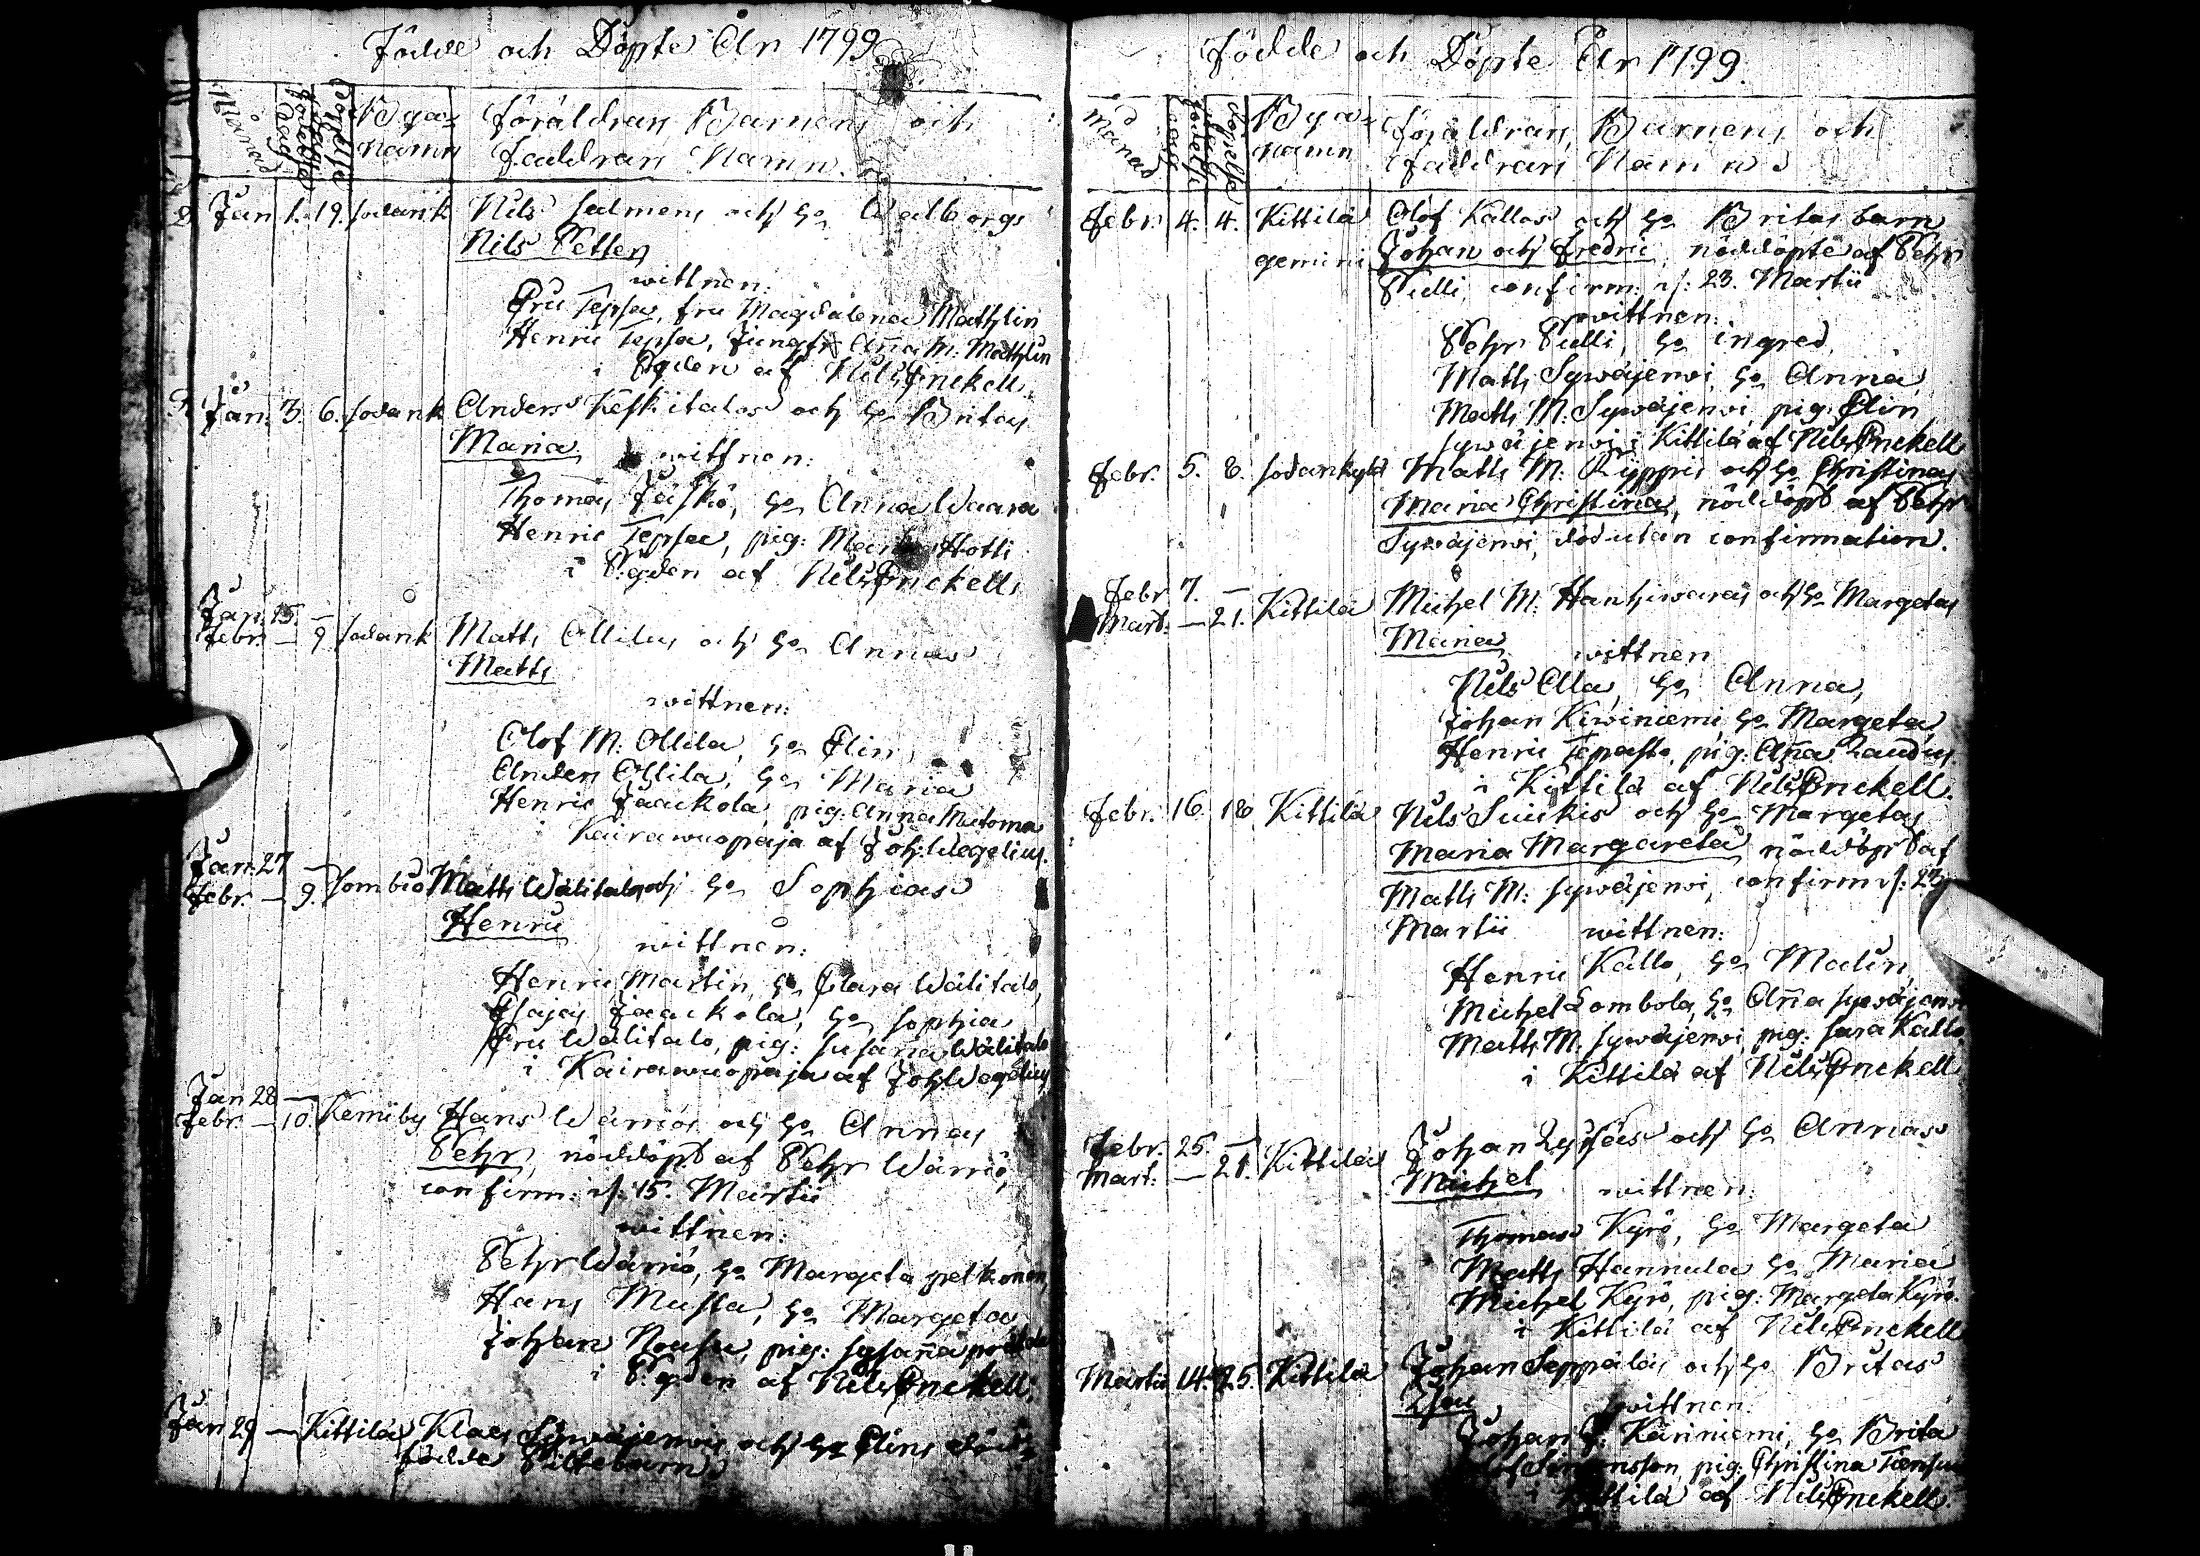 Födde och Döpte År 1799
Månad
Födelse Dag
Döpelse Dag
Bya-namn
Föräldrars Barnens och
Faddrars Namn.
Jan. 1. 19. Sodank Nils Salmens och H:o Walborgs
Nils Petter
wittnen:
Eric Tepsa, fru Magdalena Mathlin
Henric Tepsa, Jungfr Aña M: Mathlin
i Sgden af Nils Enckell.
Jan. 3. 6. Sodank Anders Keskitalos och H:o Britas
Maria
wittnen:
Thomas Jäskö, H:o Anna Waara
Henric Tepsa, pig: Hotti
i Sgden af Nils Enckell
Jan. 15. —
Febr. — 9 Sodank Matts Ollilas och H:o Annas
Matts
wittnen:
Olof M: Ollila, H:o Elin,
Anders Ollila, H:o Maria
Henric Jaackola, pig: Anna
i Kairawuopaja af Joh: Wegelius.
Jan. 27 —
Febr. — 9. Sombio Matts Wälitalos och H:o Sophias
Henric
wittnen:
Henric Martin, H:o Clara Wälitalo,
Esajas Jaackola, H:o Sophia
Eric Wälitalo, pig: Susana Wälitalo
i Kairawuopaja af Joh: Wegelius
Jan 28 —
Febr. — 10. Kemiby Hans Wärriös och H:o Annas
Pehr, nöddöpt af Pehr Wärriö,
confirm: d: 15. Martii
wittnen:
Pehr Wärriö, H:o Margeta pelkonen,
Hans Musta, H:o Margeta
Johan Nousu, pig: Susaña
i Sgden af Nils Enckell.
Jan 29 — Kittilä Klaes Sywäjerwis och H:o Elins död-
födde Pillebarn.
Födde och Döpte År 1799.
Månad
Födelse Dag
Döpelse Dag
Bya-namn
Föräldrars, Barnens och
Faddrars Namn
Febr. 4. 4. Kittilä Olof Kallos och H:o Britas barn
gemini Johan och Fredric, nöddöpte af Pehr
Pulli, confirm: d: 23. Martii
wittnen:
Pehr Pulli, H:o ingred,
Matts Sywäjerwi, H:o Anna,
Matts M: Sywäjerwi, pig: Elin
Sywäjerwi i Kittilä af Nils Enckell
Febr. 5. 8. Sodankylä Matts M: Ryppis och H:o Christinas
Maria Christina, nöddöpt af Pehr
Sywäjerwi, död utan confirmation.
Febr 7. —
Mart: — 21. Kittilä Michel M: Hanhiwaras och H:o Margetas
Maria
wittnen
Nils Alla, H:o Anna,
Johan Kiwiniemi H:o Margeta,
Henric Tepasto, pig: Aña
i Kittilä af Nils Enckell.
Febr. 16 18 Kittilä Nils Suikis och H:o Margetas
Maria Margareta, nöddöpt af
Matts M: Sywäjerwi, confirm d: 23
Martii wittnen:
Henric Kallo, H:o Malin,
Michel Lombola, H:o Aña Sywäjerwi
Matts M. Sywäjerwi, pig: Sara Kallo,
i Kittilä af Nils Enckell
Febr. 25. —
Mart: — 21. Kittilä Johan och H:o Annas
Michel wittnen:
Thomas Kyrö, H:o Margeta
Matts Hannula H:o Maria
Michel Kyrö, pig: Margeta Kyrö.
i Kittilä af Nils Enckell
Martii 14. 25. Kittilä Johan Seppäläs och H:o Britas
wittnen:
Johan J: Kariniemi, H:o Brita
pig: Christina
i Kittilä af Nils Enckell.